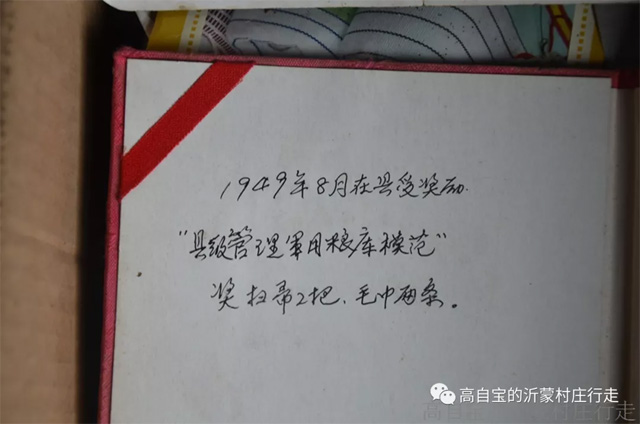 1949年8月在县受奖励.
"县级管理军用粮库模范"
奖扫帚2把、毛巾两条。
高自宝的沂蒙村庄行走